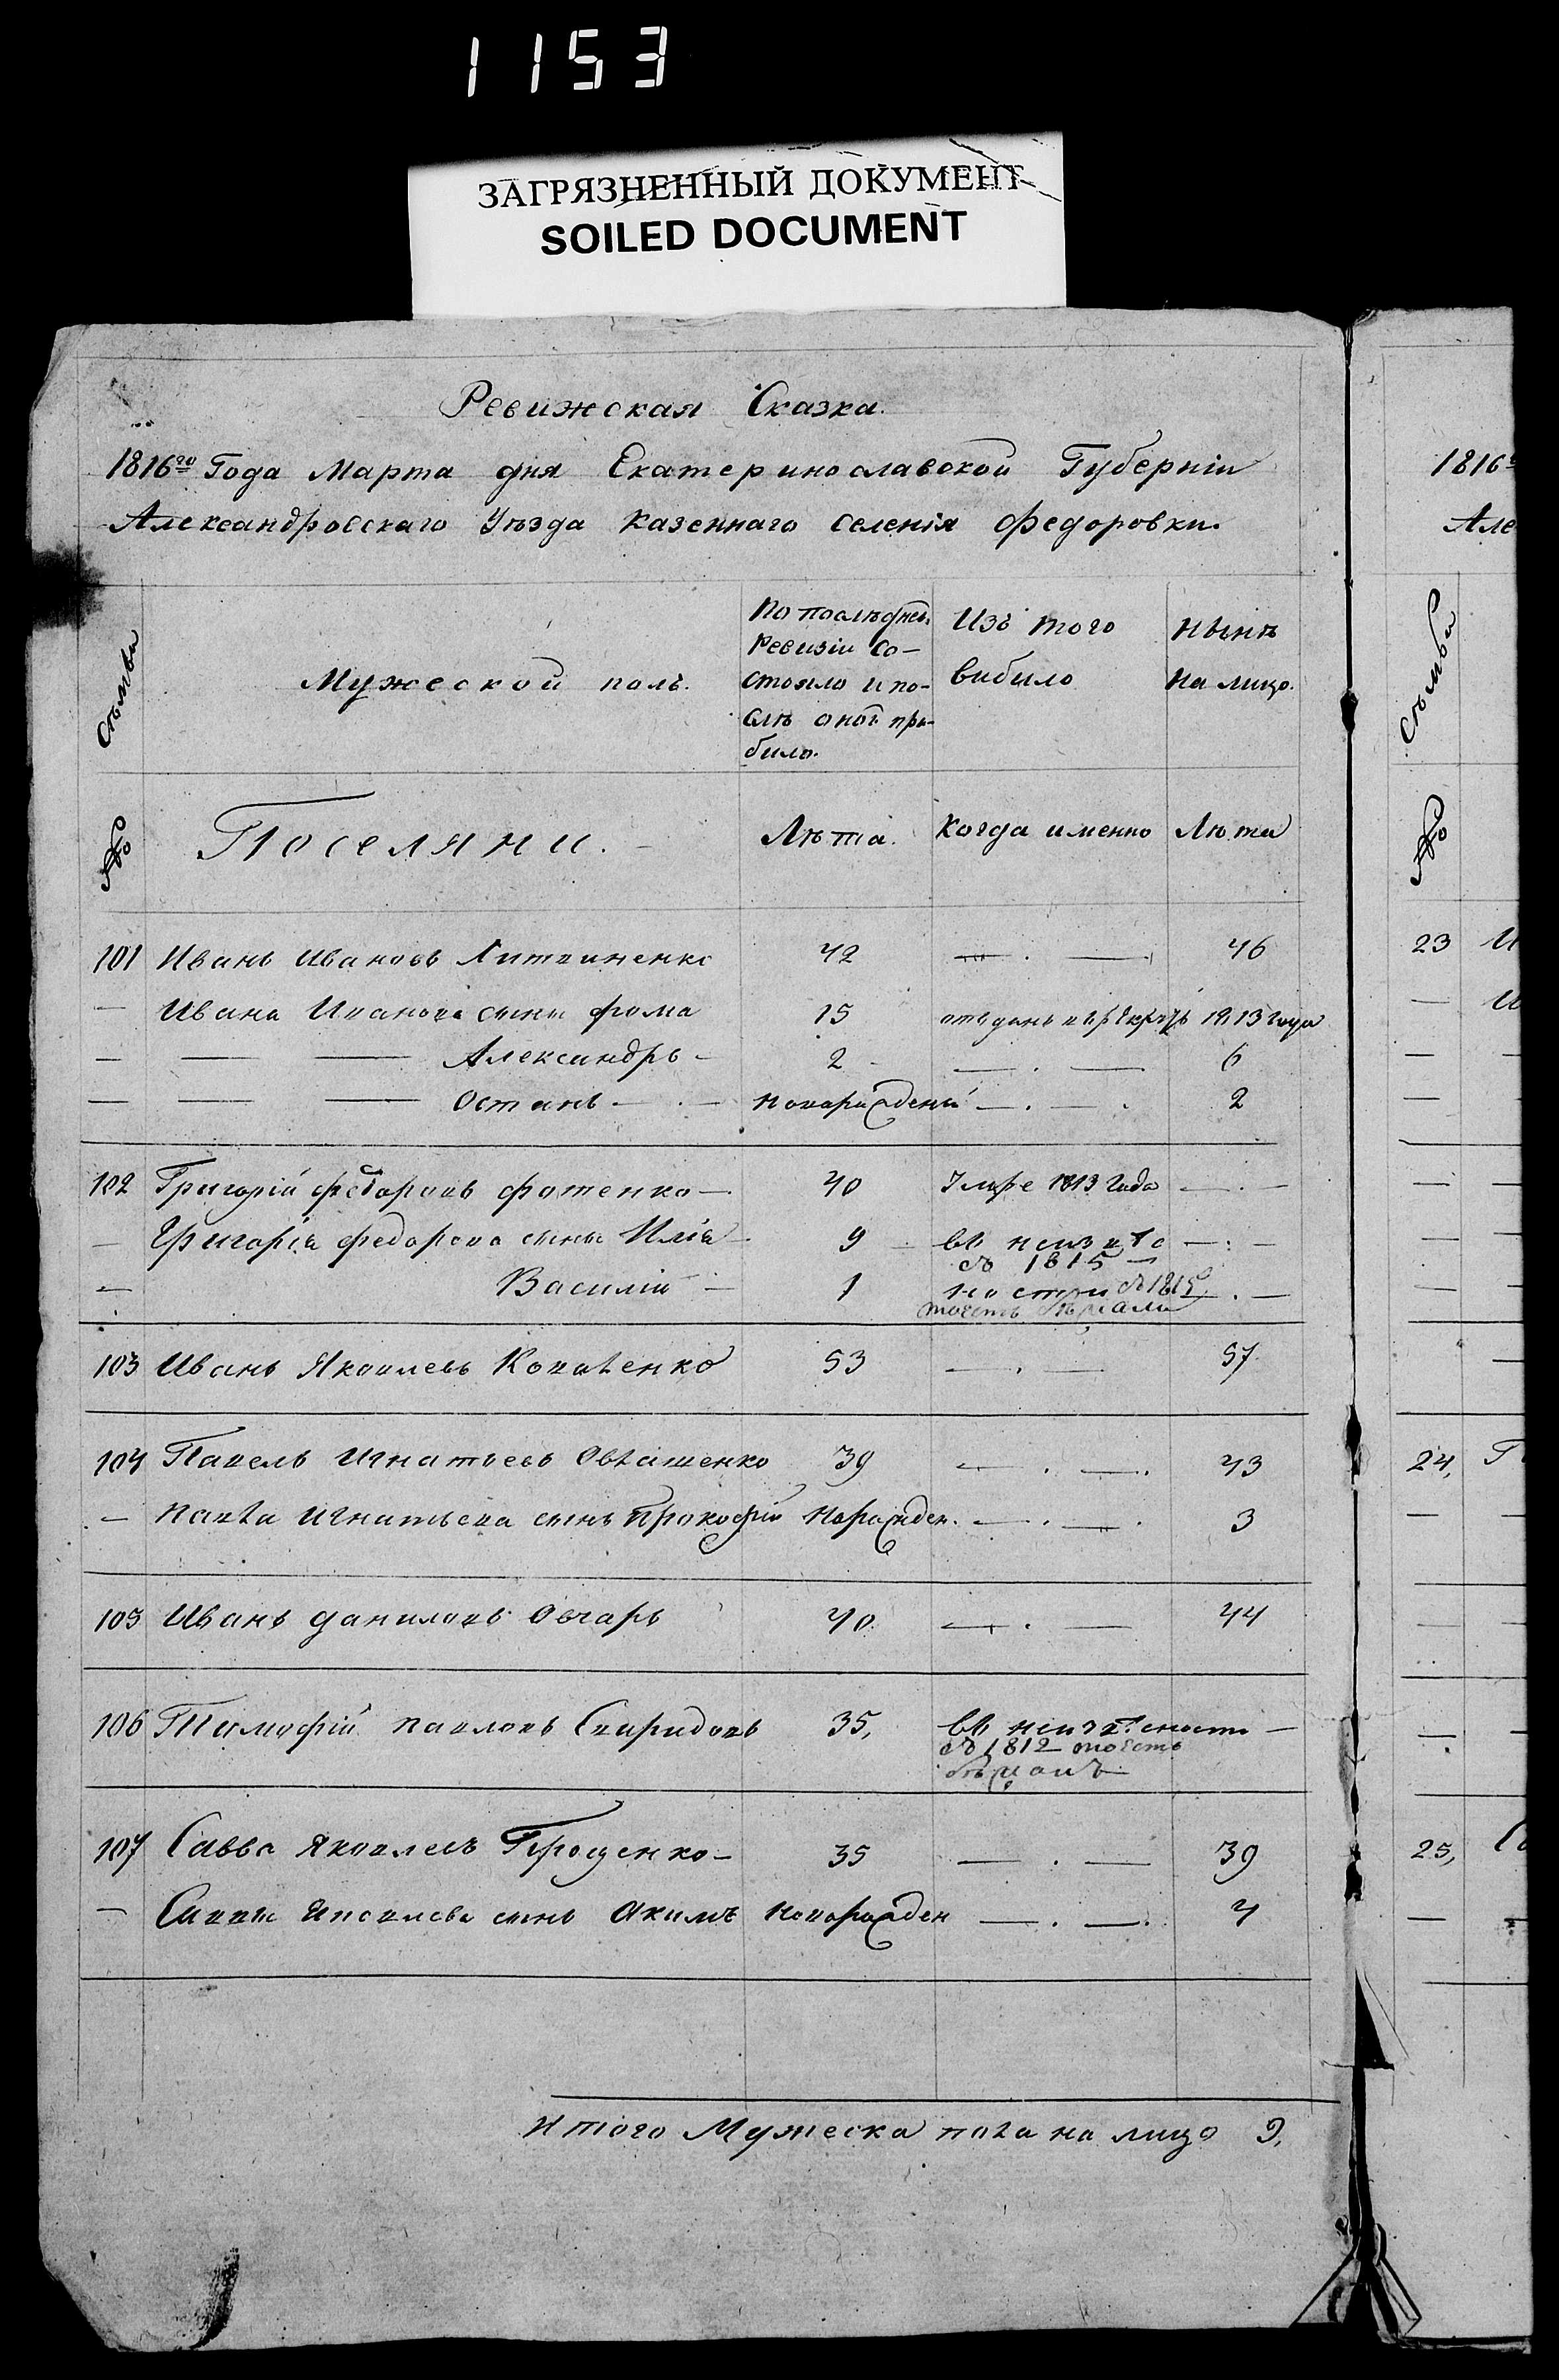 1153
ЗАГРЯЗНЕННЫЙ ДОКУМЕНТ
SOILED DOCUMENT
Ревижская Сказка.
1816го Года Марта дня Екатеринославской Губерніи
Александровскаго Уѣзда казеннаго селенія Федоровки.
Семьи
Мужеской полъ.
По послѣдней
Ревизіи Со-
стояло и по-
слѣ оной при-
било.
Изъ того
вибило
Нынѣ
на лицо.
№
Поселяни.
Лѣта.
Когда именно
Лѣта
101 Иванъ Ивановъ Литвиненко 42 46
Ивана Иванова сынъ Фома 15 отъданъ 1813 года
Александръ 2 6
Остапъ Новорожденый 2
102 Григорій Федоровъ Фотенко 40 Умре 1813 Года
Григорія Федорова сынъ Илія 9 въ неизвѣ
съ 1815
Василій 1 съ 1815
тоесть бѣжали
103 Иванъ Яковлевъ Коваленко 53 57
104 Павелъ Игнатьевъ Овлашенко 39 43
Павла Игнатьева сынъ Прокофій Норожден. 3
105 Иванъ Даниловъ Овчаръ 40 44
106 Тимофій Павловъ Свиридовъ 35, въ неизвѣсности
съ 1812 тоесть
бѣжалъ
107 Савва Яковлевъ Гроценко 35 39
Саввы Яковлева сынъ Акимъ Новорожден 4
Итого Мужеска пола на лицо 9,
1816
Але
Семьи
№
23 И
И
24, П
25, Са